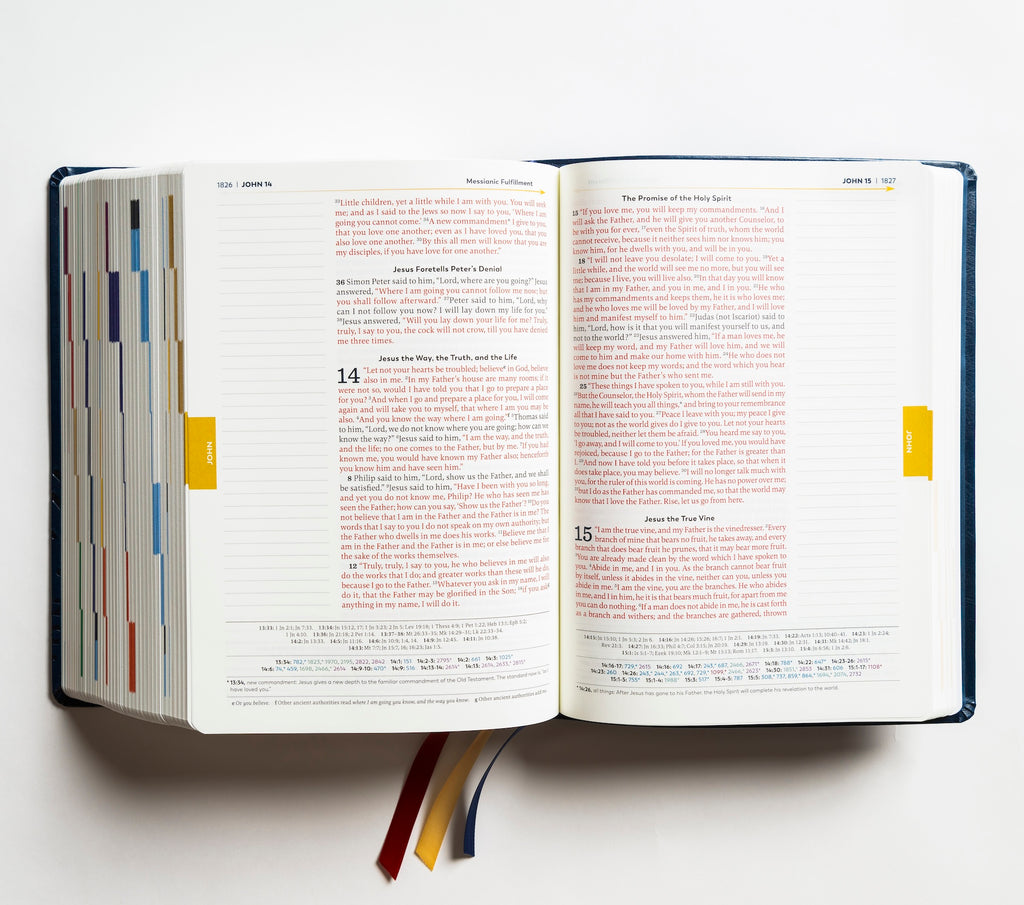 1826 | JOHN 14
Messianic Fulfillment
³³Little children, yet a little while I am with you. You will seek
me; and as I said to the Jews so now I say to you, ‘Where I am
going you cannot come.’ ³⁴A new commandment* I give to you,
that you love one another; even as I have loved you, that you
also love one another. ³⁵By this all men will know that you are
my disciples, if you have love for one another.”
Jesus Foretells Peter’s Denial
36 Simon Peter said to him, “Lord, where are you going?” Jesus
answered, “Where I am going you cannot follow me now; but
you shall follow afterward.” ³⁷Peter said to him, “Lord, why
can I not follow you now? I will lay down my life for you.”
³⁸Jesus answered, “Will you lay down your life for me? Truly,
truly, I say to you, the cock will not crow, till you have denied
me three times.
Jesus the Way, the Truth, and the Life
14 “Let not your hearts be troubled; believeᵉ in God, believe
also in me. ²In my Father’s house are many rooms; if it
were not so, would I have told you that I go to prepare a place
for you? ³And when I go and prepare a place for you, I will come
again and will take you to myself, that where I am you may be
also. ⁴And you know the way where I am going.”ᶠ ⁵Thomas said
to him, “Lord, we do not know where you are going; how can we
know the way?” ⁶Jesus said to him, “I am the way, and the truth,
and the life; no one comes to the Father, but by me. ⁷If you had
known me, you would have known my Father also; henceforth
you know him and have seen him.”
8 Philip said to him, “Lord, show us the Father, and we shall
be satisfied.” ⁹Jesus said to him, “Have I been with you so long,
and yet you do not know me, Philip? He who has seen me has
seen the Father; how can you say, ‘Show us the Father’? ¹⁰Do you
not believe that I am in the Father and the Father in me? The
words that I say to you I do not speak on my own authority; but
the Father who dwells in me does his works. ¹¹Believe me that I
am in the Father and the Father in me; or else believe me for
the sake of the works themselves.
12 “Truly, truly, I say to you, he who believes in me will also
do the works that I do; and greater works than these will he do,
because I go to the Father. ¹³Whatever you ask in my name, I will
do it, that the Father may be glorified in the Son; ¹⁴if you askᵍ
anything in my name, I will do it.
* 13:34, new commandment: Jesus gives a new depth to the familiar commandment of the Old Testament. The standard now is, “as I
have loved you.”
e Or you believe. f Other ancient authorities read where I am going you know, and the way you know. g Other ancient authorities add me
JOHN
JOHN 15 | 1827
The Promise of the Holy Spirit
15 “If you love me, you will keep my commandments. ¹⁶And I
will ask the Father, and he will give you another Counselor, to
be with you for ever, ¹⁷even the Spirit of truth, whom the world
cannot receive, because it neither sees him nor knows him; you
know him, for he dwells with you, and will be in you.
18 “I will not leave you desolate; I will come to you. ¹⁹Yet a
little while, and the world will see me no more, but you will see
me; because I live, you will live also. ²⁰In that day you will know
that I am in my Father, and you in me, and I in you. ²¹He who
has my commandments and keeps them, he it is who loves me;
and he who loves me will be loved by my Father, and I will love
him and manifest myself to him.” ²²Judas (not Iscariot) said to
him, “Lord, how is it that you will manifest yourself to us, and
not to the world?” ²³Jesus answered him, “If a man loves me, he
will keep my word, and my Father will love him, and we will
come to him and make our home with him. ²⁴He who does not
love me does not keep my words; and the word which you hear
is not mine but the Father’s who sent me.
25 “These things I have spoken to you, while I am still with you.
²⁶But the Counselor, the Holy Spirit, whom the Father will send in my
name, he will teach you all things,* and bring to your remembrance
all that I have said to you. ²⁷Peace I leave with you; my peace I give
to you; not as the world gives do I give to you. Let not your hearts
be troubled, neither let them be afraid. ²⁸You heard me say to you,
‘I go away, and I will come to you.’ If you loved me, you would have
rejoiced, because I go to the Father; for the Father is greater than
I. ²⁹And now I have told you before it takes place, so that when it
does take place, you may believe. ³⁰I will no longer talk much with
you, for the ruler of this world is coming. He has no power over me;
³¹but I do as the Father has commanded me, so that the world may
know that I love the Father. Rise, let us go from here.
Jesus the True Vine
15 “I am the true vine, and my Father is the vinedresser. ²Every
branch of mine that bears no fruit, he takes away, and every
branch that does bear fruit he prunes, that it may bear more fruit.
³You are already made clean by the word which I have spoken to
you. ⁴Abide in me, and I in you. As the branch cannot bear fruit
by itself, unless it abides in the vine, neither can you, unless you
abide in me. ⁵I am the vine, you are the branches. He who abides
in me, and I in him, he it is that bears much fruit, for apart from me
you can do nothing. ⁶If a man does not abide in me, he is cast forth
as a branch and withers; and the branches are gathered, thrown
* 14:26, all things: After Jesus has gone to his Father, the Holy Spirit will complete his revelation to the world.
JOHN